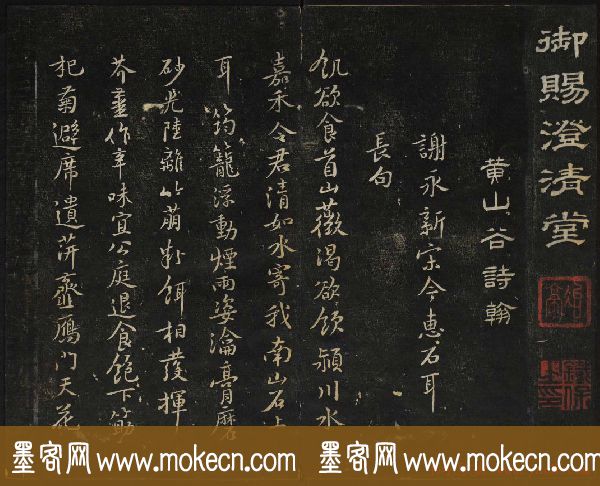 御賜澄清堂
黄山谷詩翰
謝永新宋令惠石耳
長句
飢欲食首山薇渴欲飲潁川水
嘉禾令君清如水寄我南山石上
耳筠籠浮動煙雨姿瀹膏磨
砂光陸離竹萠粉餌相發揮
芥薑作辛味宜公庭退食飽下筯
杞菊避席遺萍虀鴈門天花
墨客网 www.mokecn.com 墨客网 www.mokecn.com